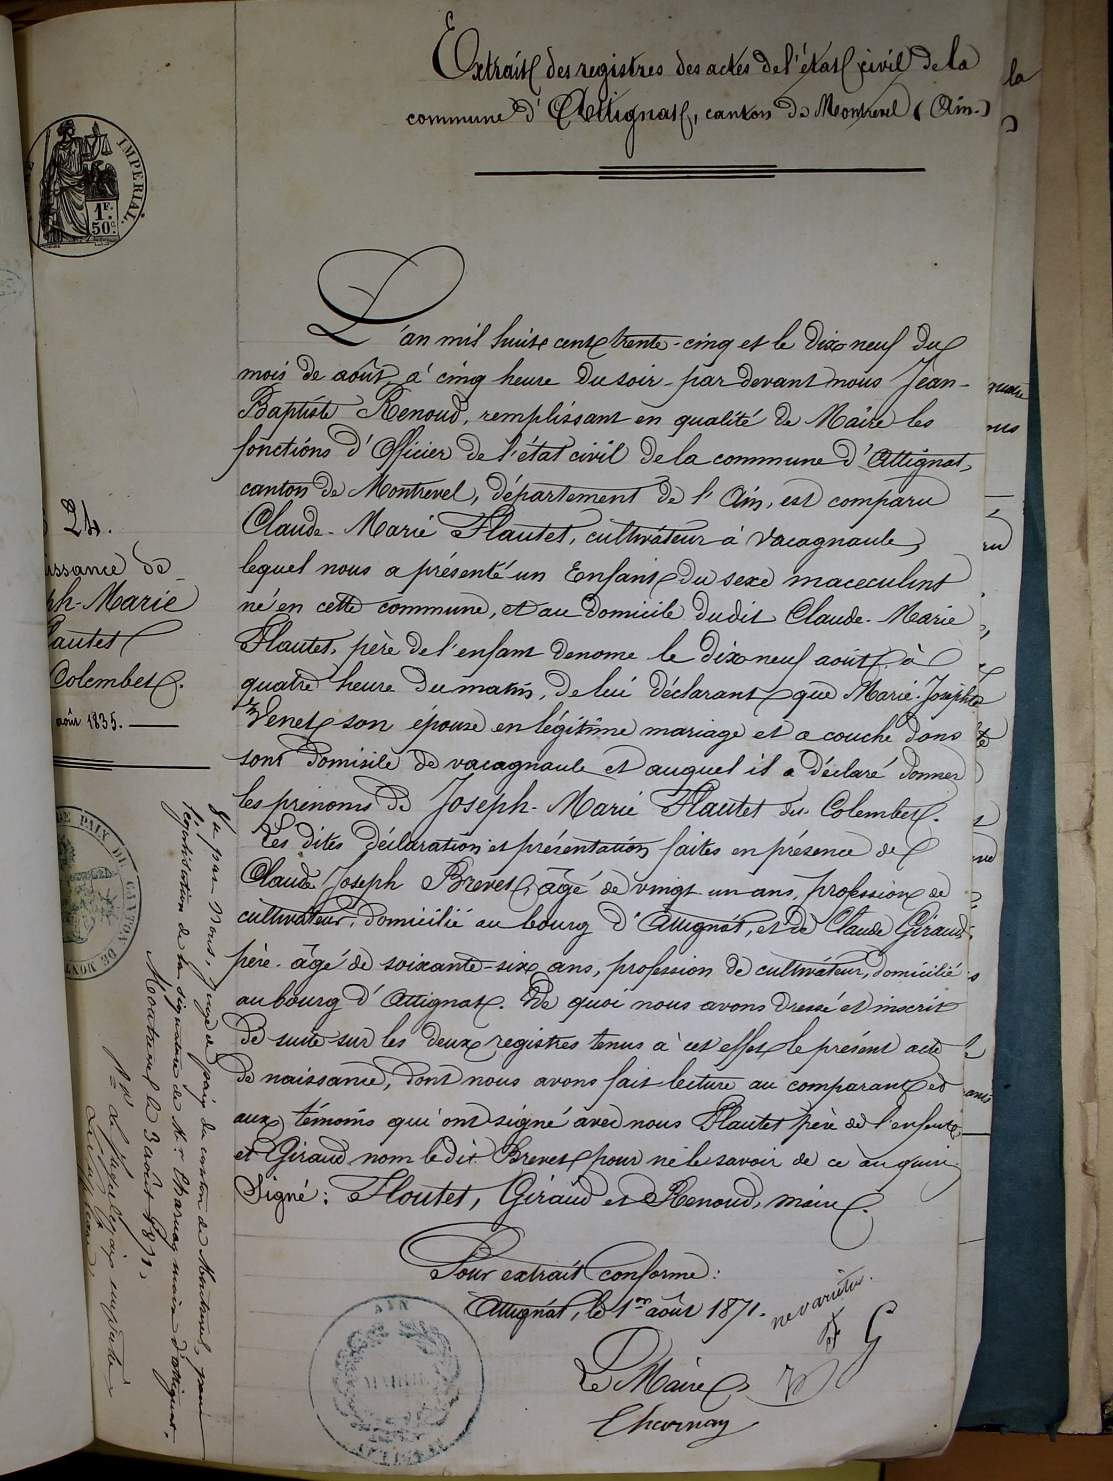 Extrait des registres des actes de l'état civil de la
commune d'Attignat, canton de Montrevel (Ain.)
IMPERIAL.
1F.
50c.
L'an mil huit cent trente-cinq et le dix neuf du
mois de août à cinq heure du soir par devant nous Jean-
Baptiste Renoud, remplissant en qualité de Maire les
fonctions d'Officier de l'état civil de la commune d'Attignat,
canton de Montrevel, département de l'Ain, est comparu
Claude-Marie Flautet, cultivateur à vacagnaule,
lequel nous a présenté un Enfant du sexe maceculint
né en cette commune, et au domicile dudit Claude-Marie
Flautet, père de l'enfant denome le dix neuf août à
quatre heure du matin, de lui déclarant que Marie-Josephte
Venet son épouse en légitime mariage et a couché dans
sont domisile de vacagnaule et auquel il a déclaré donner
les prénoms de Joseph-Marie Flautet dit Colembet.
Les dites déclaration et présentation faites en présence de
Claude Joseph Brevet, âgé de vingt un ans, profession de
cultivateur, domicilié au bourg d'Attignat, et de Claude Giraud,
père âgé de soixante-six ans, profession de cultivateur, domicilié
au bourg d'Attignat. De quoi nous avons dressé et inscrit
de suite sur les deux registres tenus à cet effet le présent acte
de naissance, dont nous avons fait lecture au comparant et
aux témoins qui ont signé avec nous Flautet père de l'enfant
et Giraud nom ledit Brevet pour ne le savoir de ce
Signé: Floutet, Giraud et Renoud, maire.
Pour extrait conforme:
Attignat, le 1er août 1871.
ne varietur.
Le Maire
Charnay
24.
issance de
ph-Marie
lautet
Colembet.
août 1835.
DE PAIX DU CANTON DE MONT
Vu par Nous, juge de paix du canton de Montrevel, pour
légalisation de la signature de Mr Charnay maire d'Attignat,
Montrevel le 3 août 1871.
AIN
MAIRIE